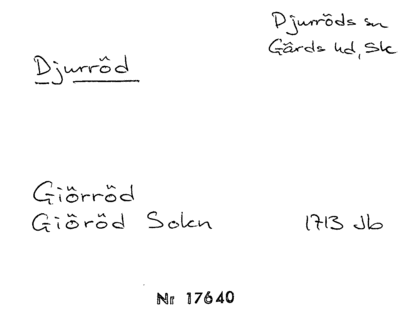 Djurröds sn
Gärds hd, Sk
Djurröd
Giörröd
Giöröd Sokn 1713 Jb
Nr 17640